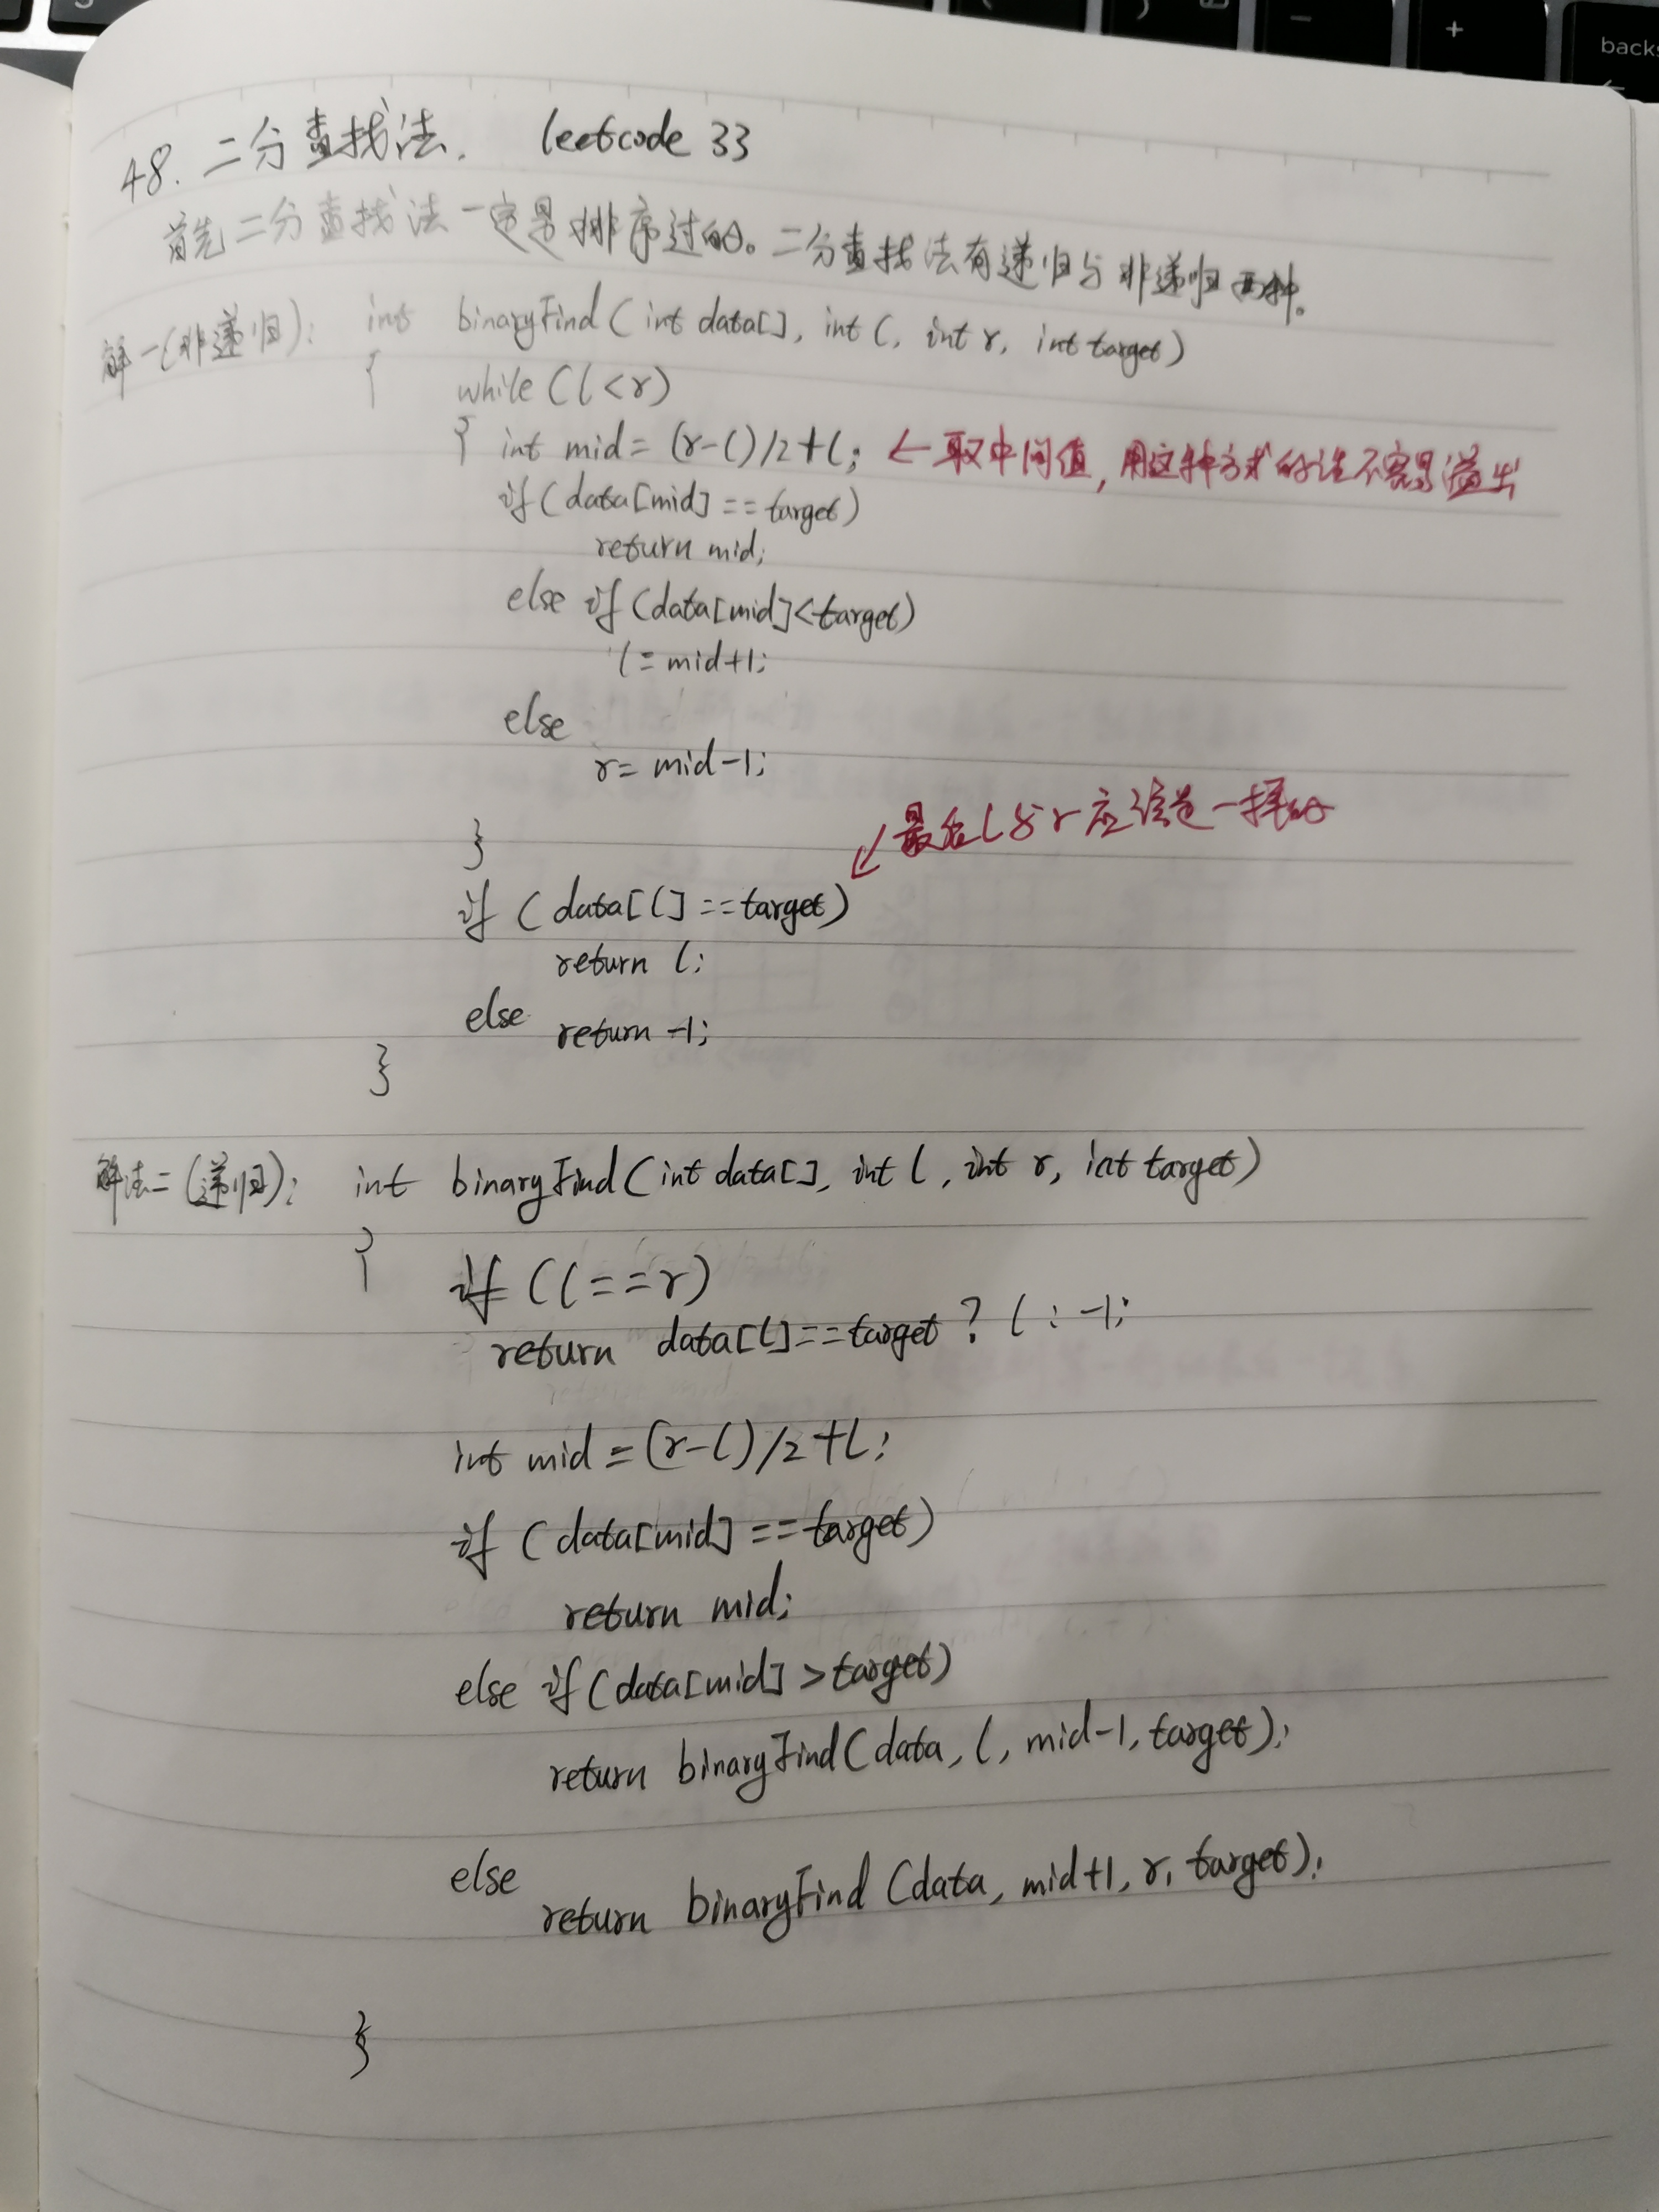 48. 二分查找法. leetcode 33
首先二分查找法一定是排序过的。二分查找法有递归与非递归两种。
解一(非递归): int binaryFind(int data[], int l, int r, int target)
{ while(l<r)
{ int mid=(r-l)/2+l; ←取中间值,用这种方式的话不容易溢出
if(data[mid]==target)
return mid;
else if(data[mid]<target)
l=mid+1;
else
r=mid-1;
}
↙最后l与r应该是一样的
if(data[l]==target)
return l;
else return -1;
}
解法二(递归): int binaryFind(int data[], int l, int r, int target)
{ if(l==r)
return data[l]==target?l:-1;
int mid=(r-l)/2+l;
if(data[mid]==target)
return mid;
else if(data[mid]>target)
return binaryFind(data, l, mid-1, target);
else
return binaryFind(data, mid+1, r, target);
}
+
back